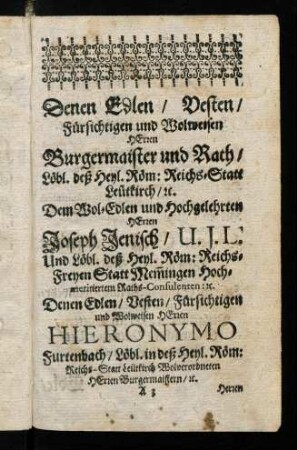 Denen Edlen / Vesten /
Fürsichtigen und Wolweisen
HErren
Burgermaister und Rath /
Löbl. deß Heyl. Röm: Reichs-Statt
Leütkirch / ꝛc.
Dem Wol-Edlen und Hochgelehrten
HErren
Joseph Jenisch / U. J. L.
Und Löbl. deß Heyl. Röm: Reichs-
Freyen Statt Mem̃ingen Hoch-
meritiertem Raths-Consulenten: ꝛc.
Denen Edlen / Vesten / Fürsichtigen
und Wolweisen HErren
HIERONYMO
Furtenbach / Löbl. in deß Heyl. Röm:
Reichs-Statt Leütkirch Wolverordneten
HErren Burgermaistern / ꝛc.
A 3 Herren